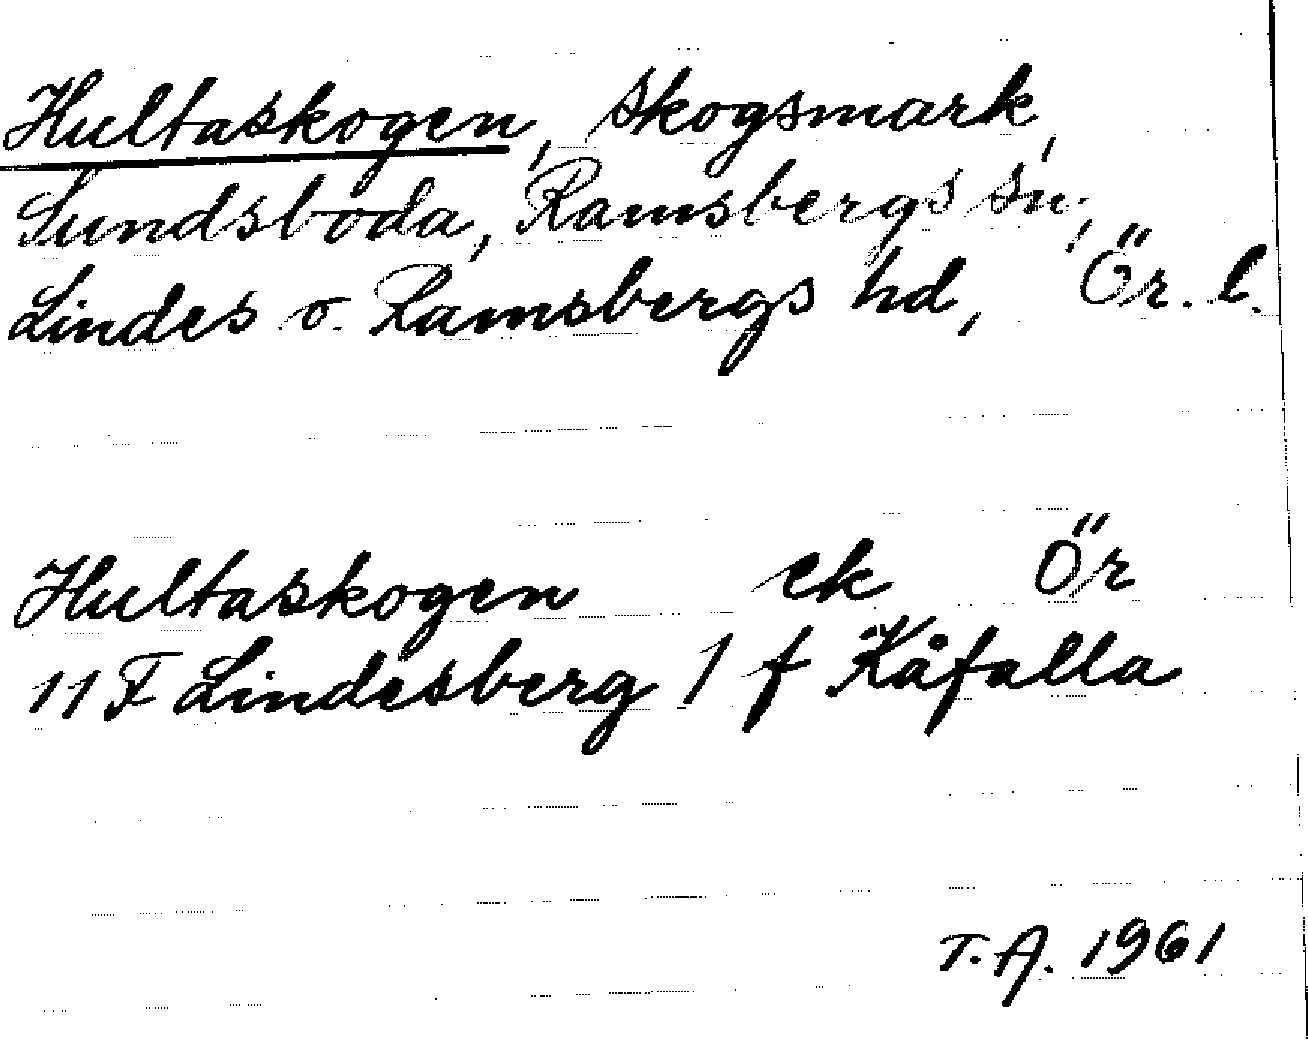 Hultaskogen, skogsmark,
Sundsboda, Ramsbergs sn,
Lindes o. Ramsbergs hd, Ör. l.
Hultaskogen ek Ör
11 F Lindesberg 1 f Kåfalla
T.A. 1961